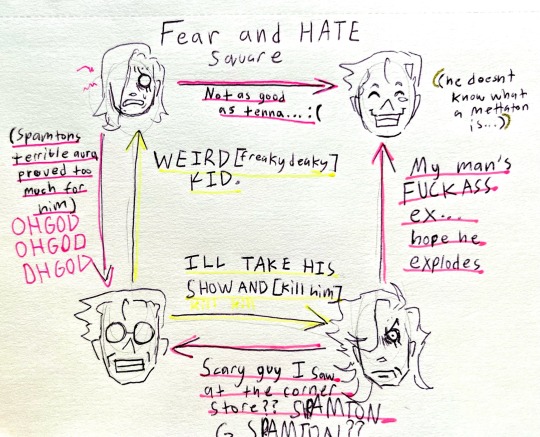 Fear and HATE
square
Not as good
as tenna... :(
((he doesnt
know what
a mettaton
is...))
(Spamtons
terrible aura
proved too
much for
him)
OHGOD
OHGOD
OHGOD
WEIRD [freaky deaky]
KID.
My man's
FUCKASS
ex...
hope he
explodes
ILL TAKE HIS
SHOW AND [kill him]
kill kill
Scary guy I saw
at the corner
store?? SPAMTON
G SPAMTON??